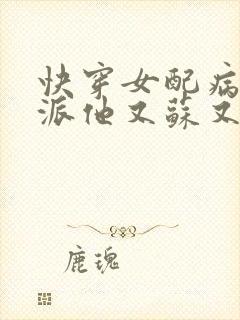 快穿女配病
派他又蘇又
鹿瑰